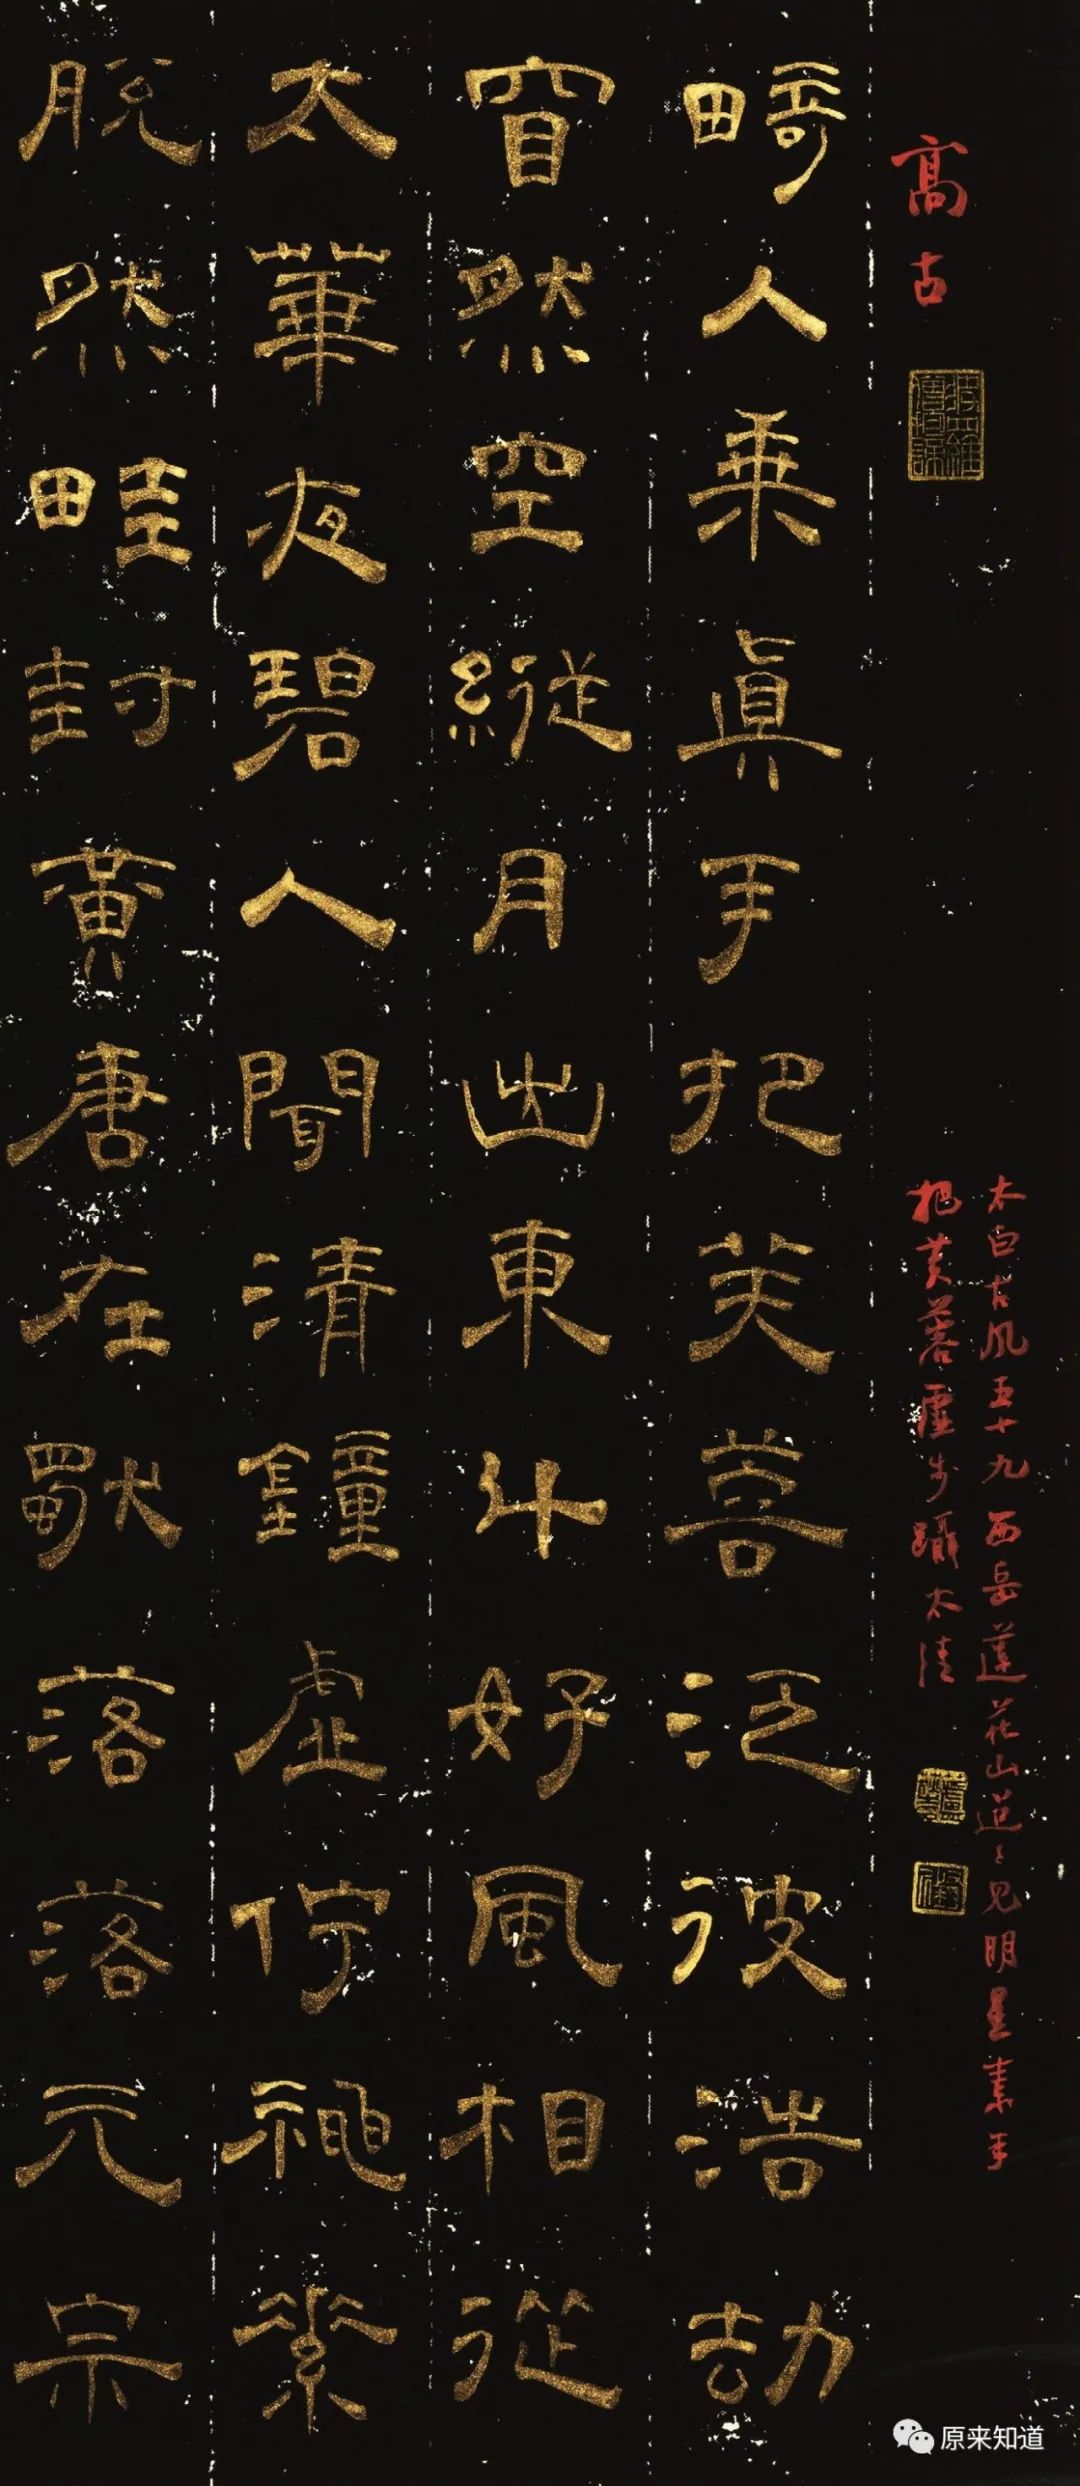 高古
太白古风五十九西岳蓮花山迢々见明星素手
把芙蓉虛步躡太清
畸人乘眞手把芙蓉泛彼浩劫
窅然空縱月出東斗好風相從
太華夜碧人聞清鐘虛佇神素
脫然畦封黃唐在獨落落元宗
原来知道